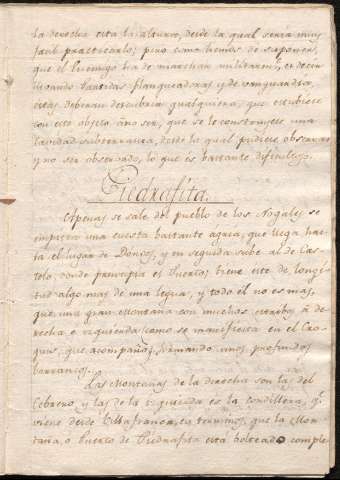 la derecha esta la altura, desde la qual seria muy
facil practicarlo; pero como hemos de suponer,
que el Enemigo ha de marchar militarmte, es decir
llevando Partidas flanqueadoras, y de vanguardia,
estas deberan descubrir qualquiera, que estubiese
con este objeto, a no ser, que se le construyese una
cavidad subterranea, desde la qual pudiese observar
y no ser observado, lo que es bastante dificultoso.
Piedrafita.
Apenas se sale del pueblo de los Nogales se
empieza una cuesta bastante agria, que llega has-
ta el lugar de Doncos, y en seguida sube al de Cas-
telo, donde principia el Puerto; tiene este de longi-
tud algo mas de una legua, y todo él no es mas,
que una gran Montaña con muchos estribos á de-
recha é izquierda, como se manifiesta en el Cro-
quis, que acompaña, formando unos profundos
barrancos.
Las Montañas de la derecha son las del
Cebrero, y las de la izquierda es la cordillera, qe
viene desde Villafranca, en terminos, que la Mon-
taña, o Puerto de Piedrafita está bolteado comple-